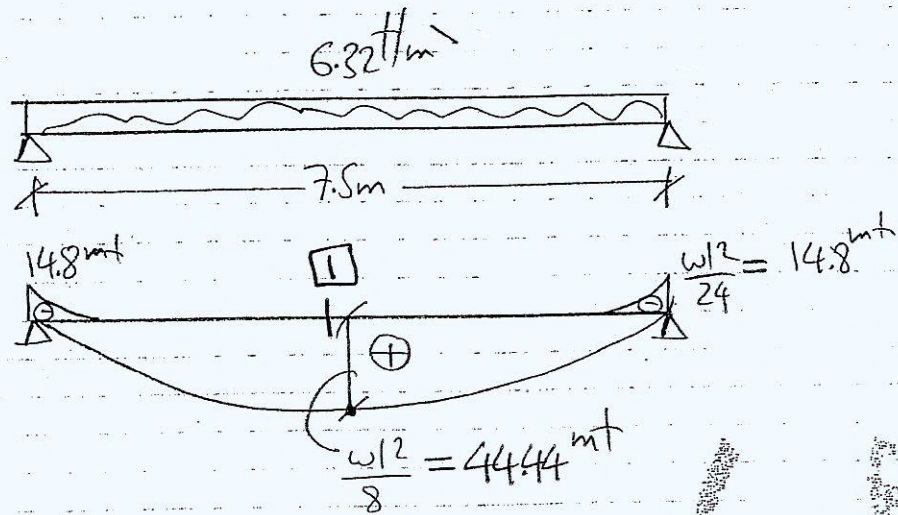 6.32 t/m`
7.5m
14.8 mt
1
wl²/24 = 14.8 mt
⊖
⊖
⊕
wl²/8 = 44.44 mt